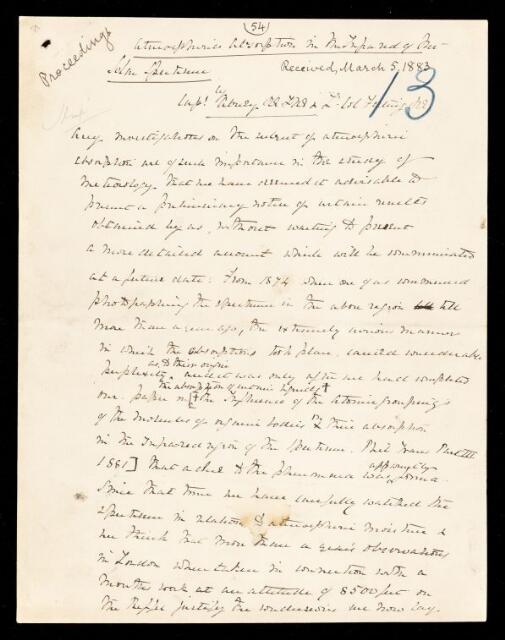 (54)
Proceedings
Atmospheric absorption in the Infrared of the
Solar Spectrum
Received, March 5, 1883
13
by
Capt. Abney RE FRS & Lt. Col Festing RE
Any investigations on the subject of atmospheric
absorption are of such importance in the study of
meteorology. that we have deemed it advisable to
present a preliminary notice of certain results
obtained by us, without waiting to present
a more detailed account which will be communicated
at a future date: From 1874 when one of us commenced
photographing the spectrum in the above region till
more than a year ago, the extremely various manner
in which the absorptions took place, caused considerable
as to their origin
perplexity, and it was only after we had completed
the absorption of certain liquids †
our paper on [† the Influence of the atomic grouping
of the molecules of organic bodies on their absorption
in the Infrared region of the Spectrum. Phil Trans Part III
1881] that a clue to the phenomena was apparently
Since that time we have carefully watched the
spectrum in relation to atmospheric moisture &
we think that more than a year's observations
in London when taken in connection with a
months work at an altitude of 8500 feet on
the Riffel justify the conclusions we now lay.